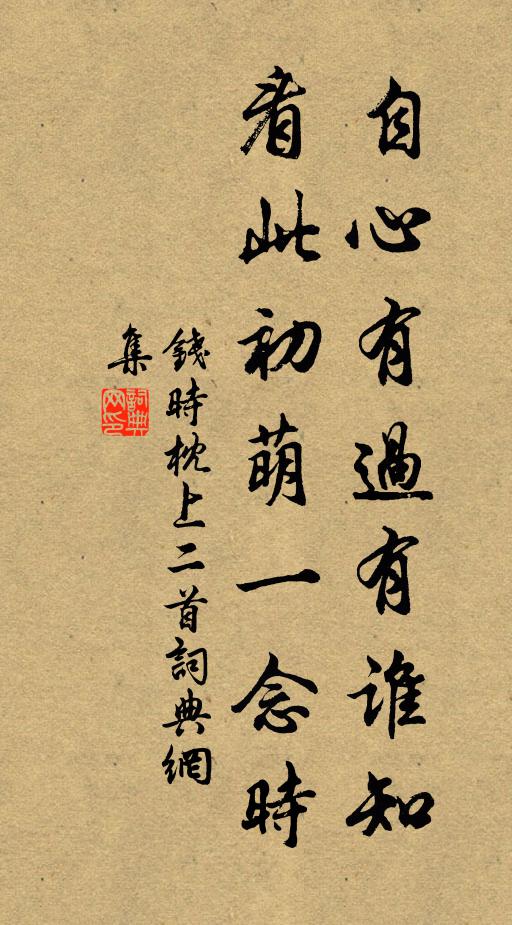 自心有過有誰知
看此初萌一念時
錢時枕上二首詞典網
集
詞典
网印